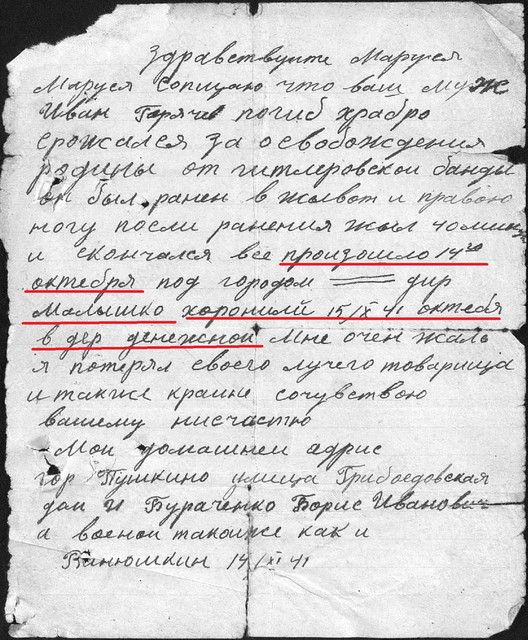 Здравствуити Маруся
Маруся сопщаю что ваш муж
Иван Горячев погиб храбро
срожался за освобождения
родины от гитлеровской банды
он был ранен в жывот и правою
ногу посли ранения жыл 40 минут
и скончался все произошло 14го
октебря под городом —— дир
Малышко хоронили 15/X 41 октебя
в дер денежной Мне очен жаль
я потерял своего лучего товарища
и также краине сочувствою
вашему нисчастю
Мои домашнеи адрис
гор Пушкино улица Грибоедовская
дом Бураченко Борис Иванович
а военой такойже как и
Ванюшкин 14/XI 41